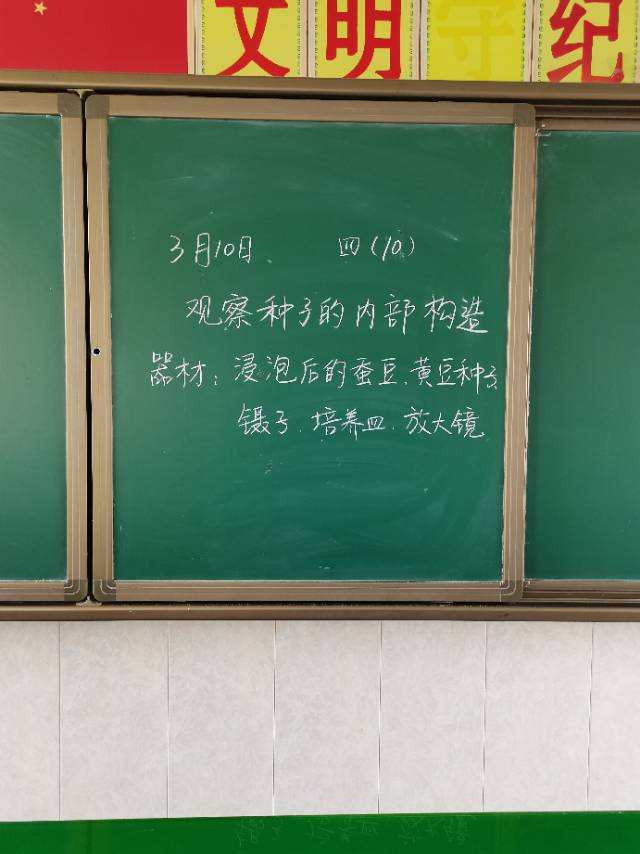 文明守纪
3月10日 四(10.)
观察种子的内部构造
器材:浸泡后的蚕豆、黄豆种子、
镊子、培养皿、放大镜